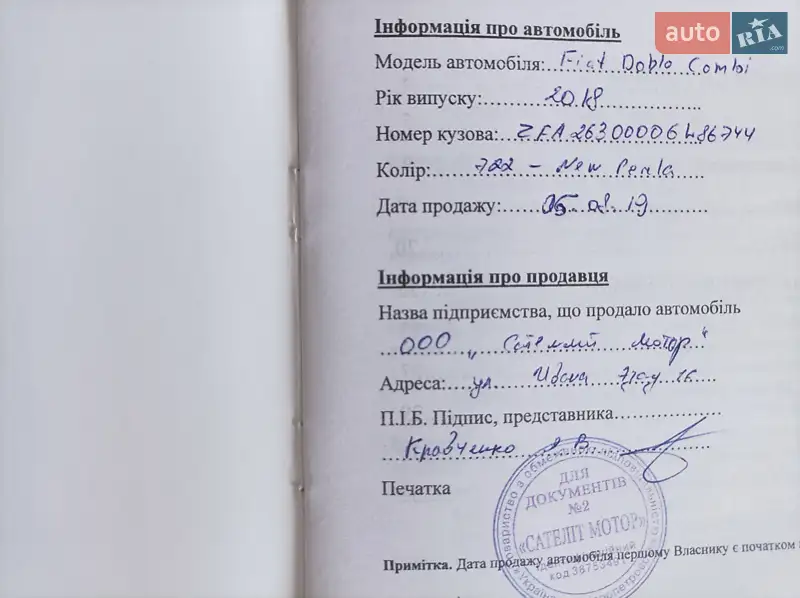 Інформація про автомобіль
auto RIA.com
Модель автомобіля: Fiat Doblo Combi
Рік випуску: 2018
Номер кузова: ZFA26300006H86744
Колір: 722 – New Perla
Дата продажу: 05.08.19
Інформація про продавця
Назва підприємства, що продало автомобіль
ООО „Сателлит Мотор"
Адреса: ул
П.І.Б. Підпис, представника
Кравченко В
Печатка
ДЛЯ
ДОКУМЕНТІВ
№2
«САТЕЛІТ МОТОР»
код
Примітка. Дата продажу автомобіля першому Власнику є початком